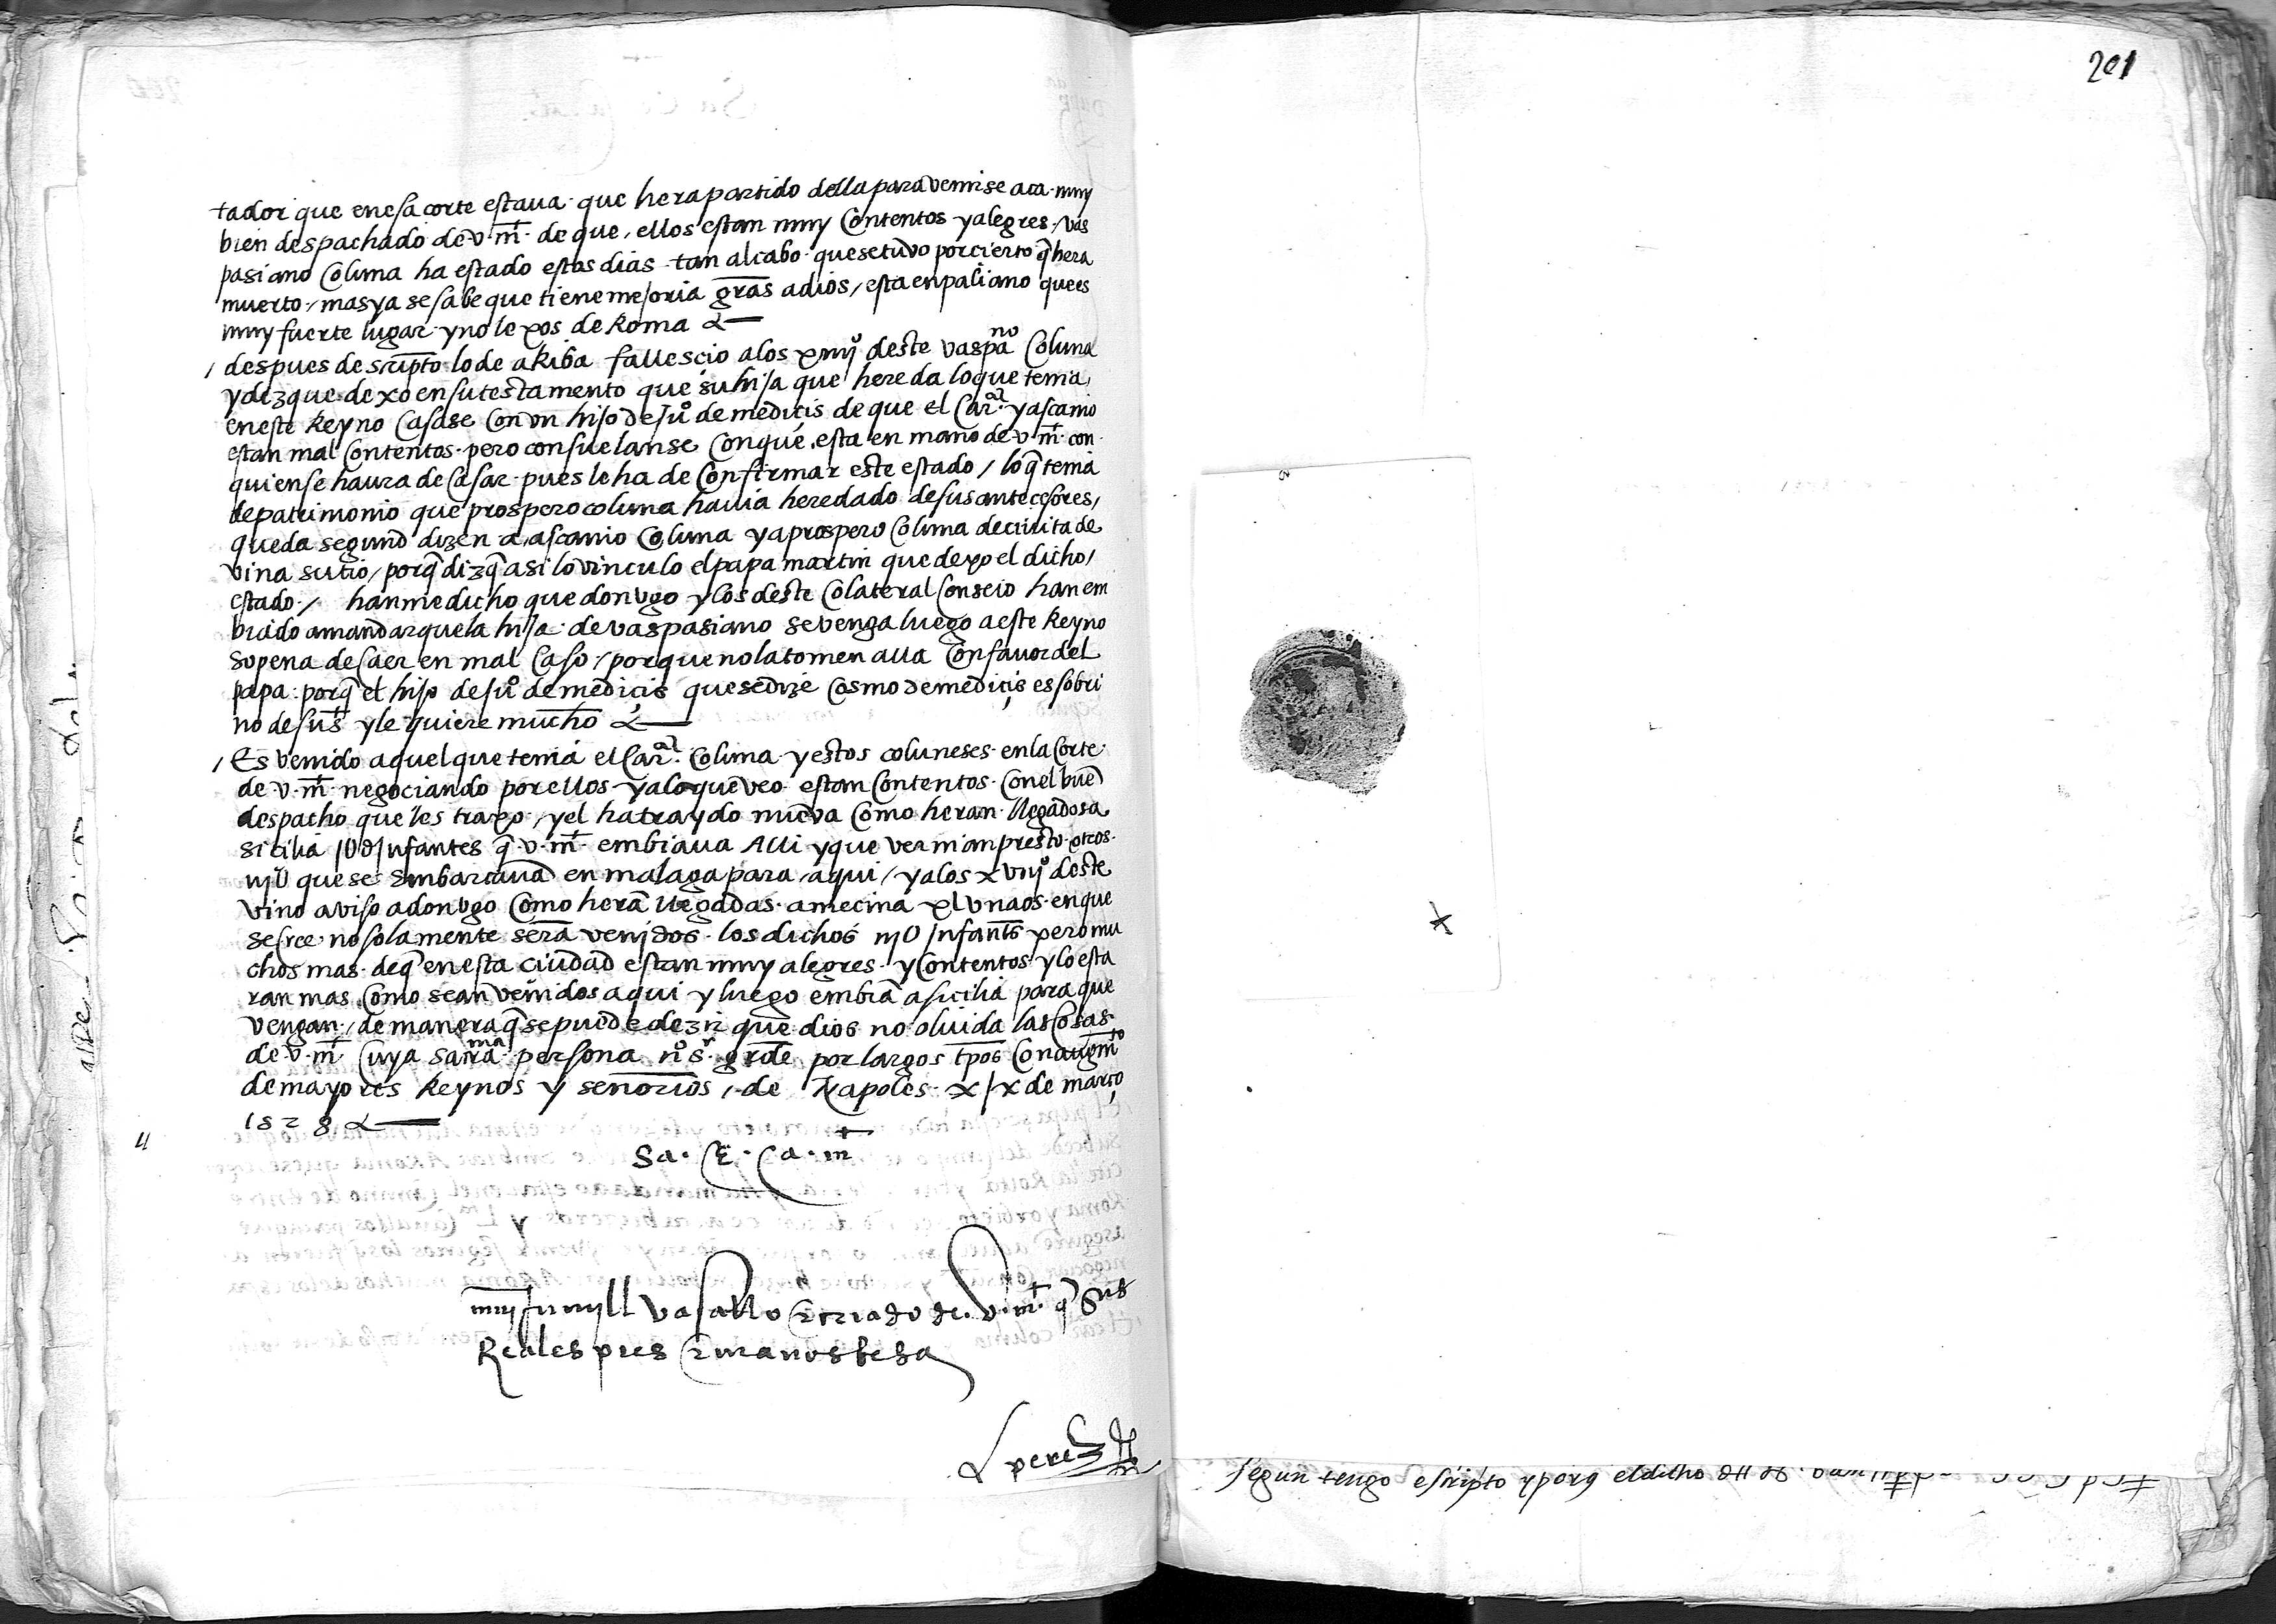 201
tador que enesa corte estaua que hera partido della para venirse aca muy
bien despachado de v. mt. de que ellos estan muy Contentos y alegres / vas
pasiano Coluna ha estado estos dias tan al cabo que se tuvo por cierto q̃ hera
muerto / mas ya se sabe que tiene mejoria gras a dios / esta en paliano que es
muy fuerte lugar y no lexos de Roma
/ despues de scripto lo de arriba fallesçio a los xiiijº deste vaspano Coluna
y diz que dexo en su testamento que su hija que hereda lo que tenia
en este Reyno Casase Con vn hijo de juº de medicis de que el Caral y ascanio
estan mal Contentos pero consuelanse Con que esta en mano de v. mt. con
quien se haura de Casar pues le ha de Confirmar este estado / lo q̃ tenia
de patrimonio que prospero coluna hauia heredado de sus antecesores /
queda segund dizen a ascanio Coluna y a prospero Coluna de ciuita de
vina su tio / porq̃ diz q̃ asi lo vinculo el papa martin que dexo el dicho
estado / han me dicho que don vgo y los deste Colateral Conseio han em
biado a mandar que la hija de vaspasiano se venga luego a este Reyno
so pena de caer en mal Caso / por que no la tomen alla Con fauor del
papa porq̃ el hijo de juº de mediçis que se dize Cosmo de mediçis es sobri
no de su sd y le quiere mucho
/ Es venido aquel que tenia el Caral Coluna y estos coluneses en la Corte
de v. mt. negociando por ellos y a lo que veo estan Contentos Con el buẽ
despacho que les traxo / y el ha traydo nueva Como heran llegados a
sicilia infantes q̃ v. mt. embiaua Alli y que vernian presto otros
iijU que se Embarcauã en malaga para aqui / y a los xviijº deste
vino aviso a don vgo Como herã llegadas a mecina xlv naos en que
se cree no solamente serã venidos los dichos iijU infantes pero mu
chos mas de q̃ en esta ciudad estan muy alegres y Contentos y lo esta
ran mas Como sean venidos aqui y luego embiã a sicilia para que
vengan / de manera q̃ se puede dezir que dios no oluida las Cosas
de v. mt. Cuya sacrama persona nº sr grde por largos tpos Con augmto
de mayores Reynos y señorios / de Napoles xix de março
1528
Sa. Ce. Ca. mt
muy humyll vasallo e criado de v. mt. q̃ sus
Reales pies e manos besa
perez
segun tengo escripto y porq el dicho